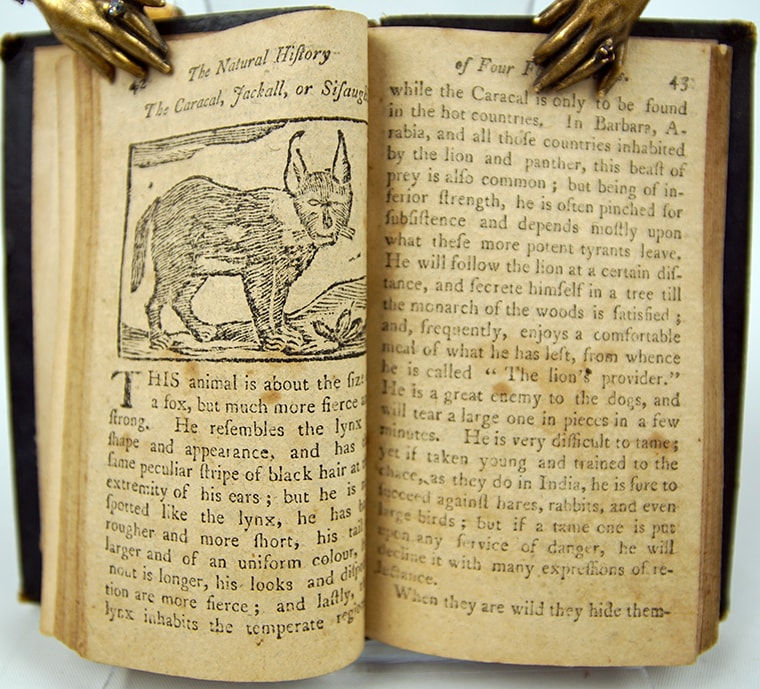 42
The Natural Hiſtory
The Caracal, Jackall, or Siſaug
THIS animal is about the ſize
a fox, but much more fierce
ſtrong. He reſembles the lynx
ſhape and appearance, and has
ſame peculiar ſtripe of black hair at
extremity of his ears; but he is
ſpotted like the lynx, he has
rougher and more ſhort, his tail
larger and of an uniform colour,
nout is longer, his looks and
tion are more fierce; and laſtly,
lynx inhabits the temperate
of Four 43
while the Caracal is only to be found
in the hot countries. In Barbara, A-
rabia, and all thoſe countries inhabited
by the lion and panther, this beaſt of
prey is alſo common; but being of in-
ferior ſtrength, he is often pinched for
ſubſiſtence and depends moſtly upon
what theſe more potent tyrants leave.
He will follow the lion at a certain diſ-
tance, and ſecrete himſelf in a tree till
the monarch of the woods is ſatisfied;
and, frequently, enjoys a comfortable
meal of what he has left, from whence
he is called “ The lion's provider.”
He is a great enemy to the dogs, and
will tear a large one in pieces in a few
minutes. He is very difficult to tame;
yet if taken young and trained to the
chace, as they do in India, he is ſure to
ſucceed againſt hares, rabbits, and even
large birds; but if a tame one is put
upon any ſervice of danger, he will
decline it with many expreſſions of re-
luctance.
When they are wild they hide them-